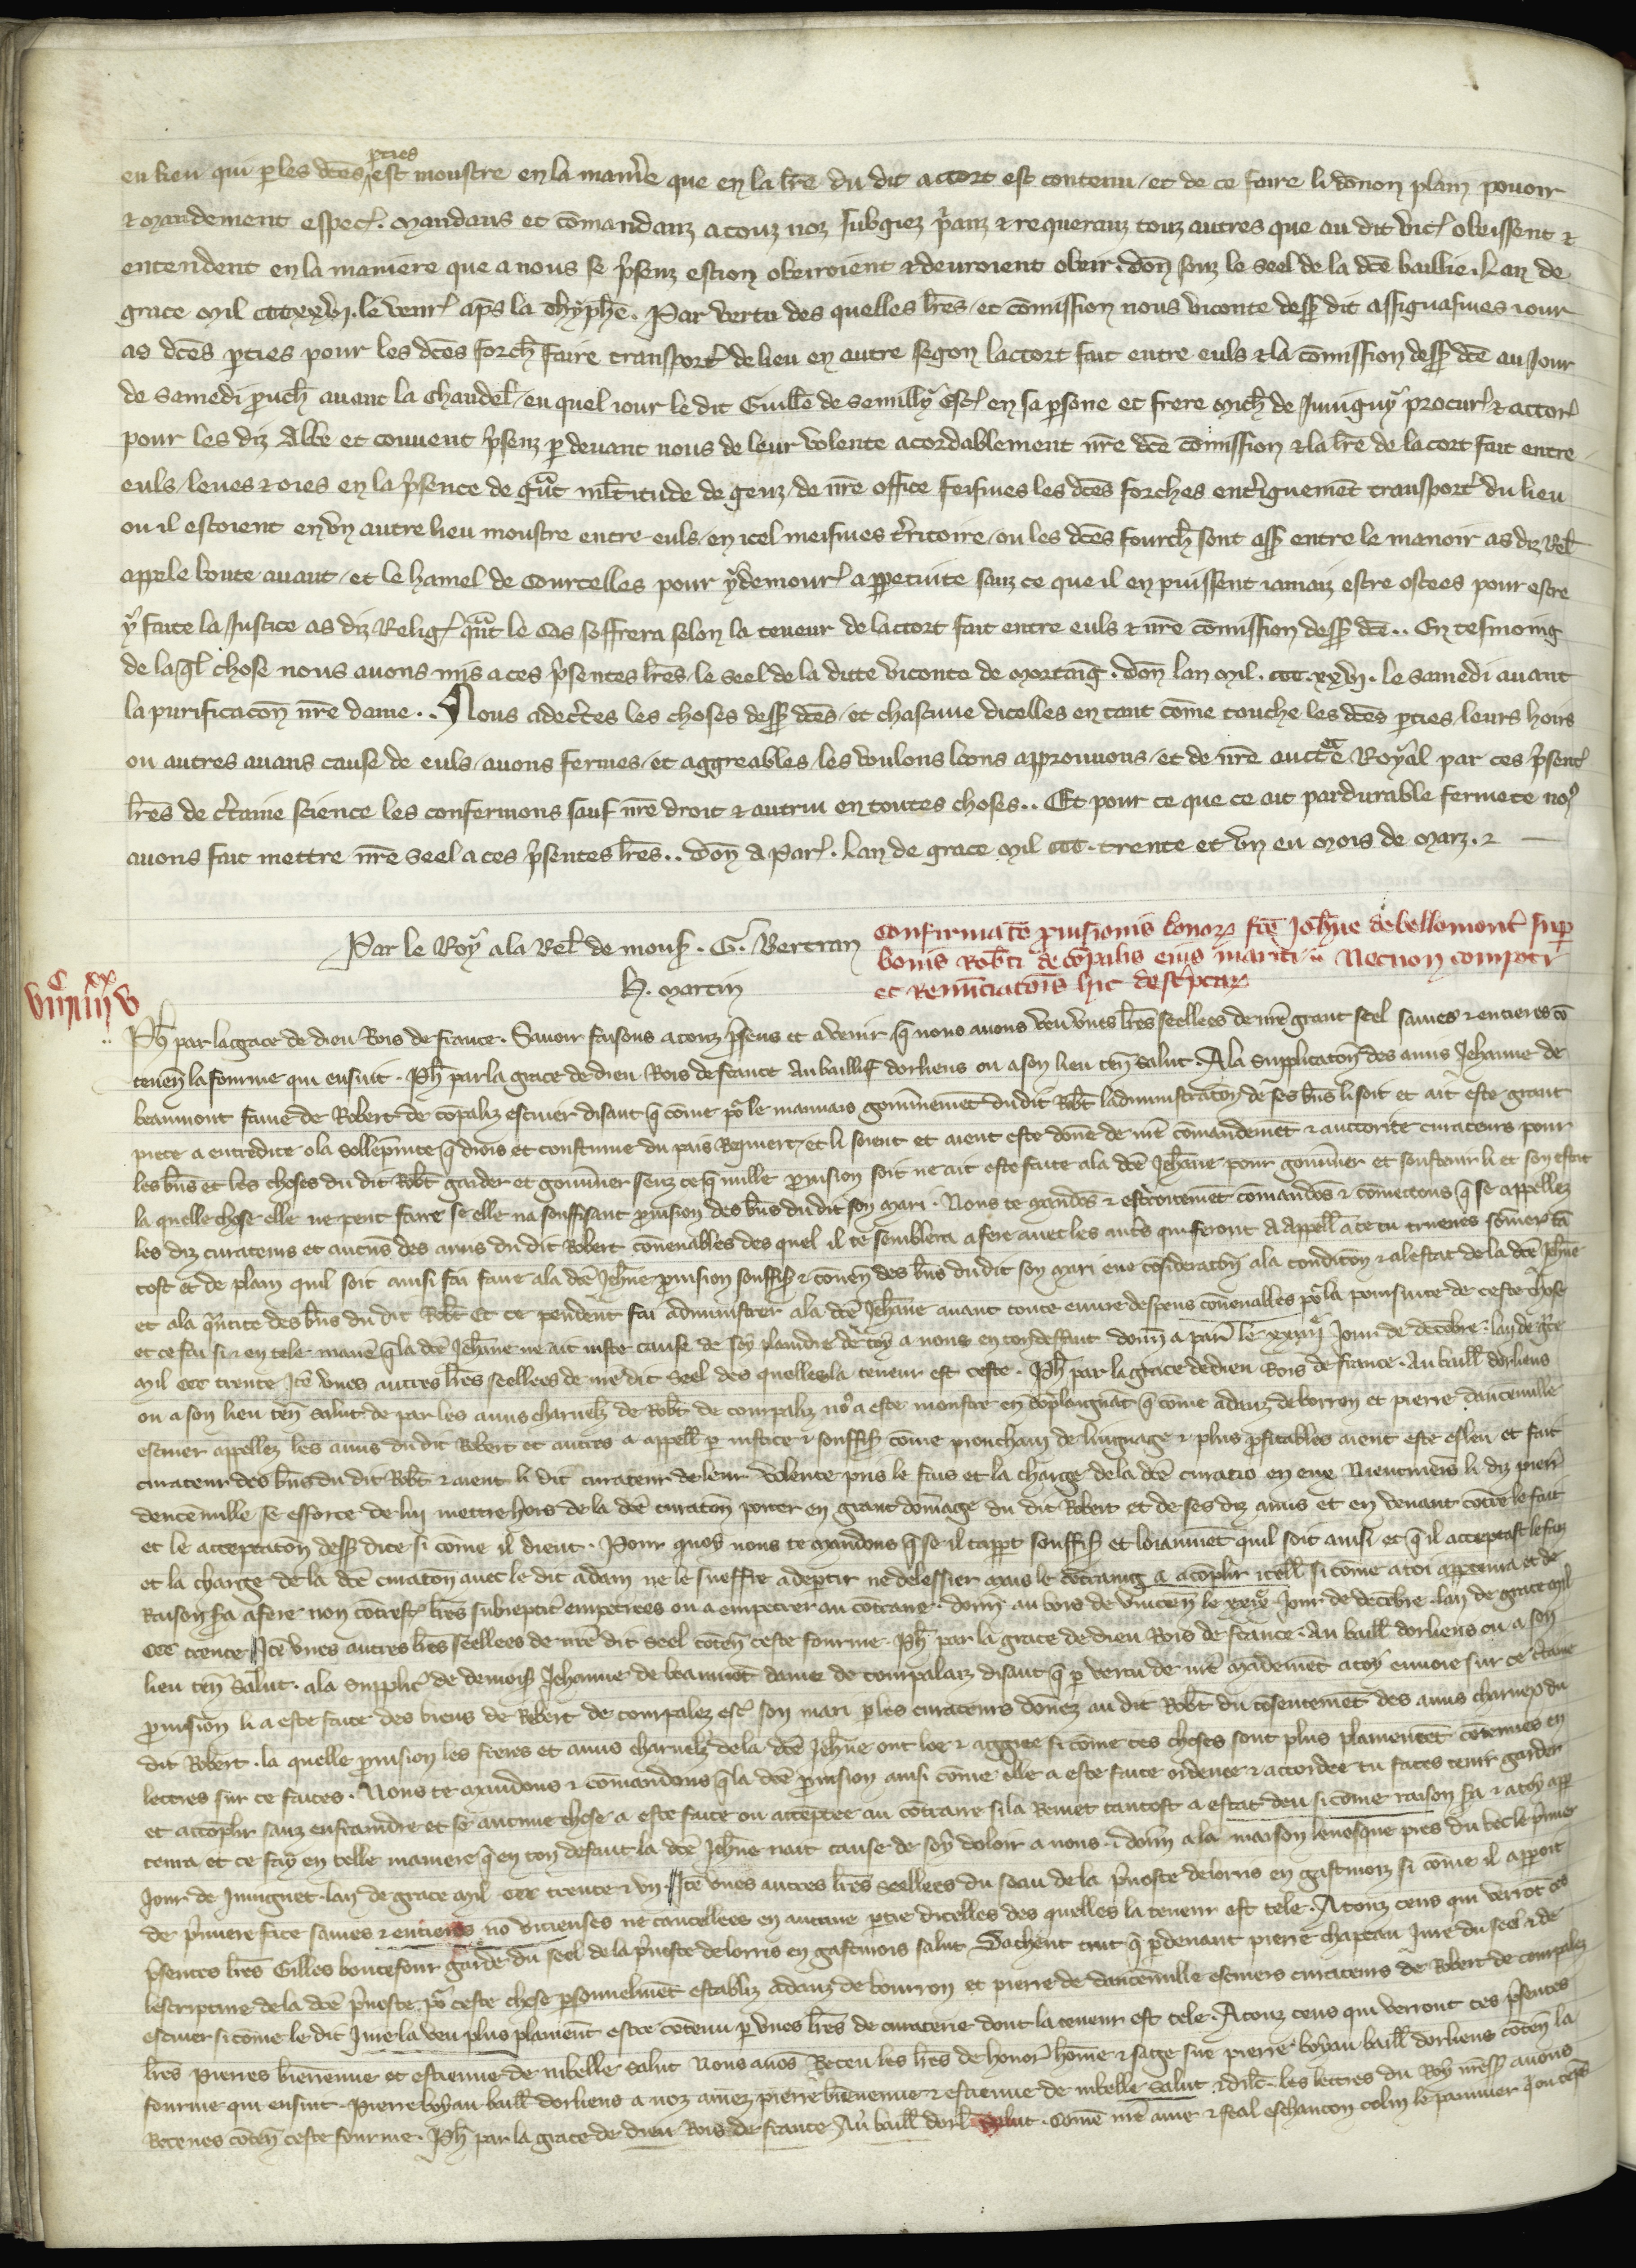 parties
en lieu qui p les dc̄es est monstre en la mani̾e que en la lr̄e du dit accort est contenu / et de ce faire li donon plain pouoir
& mandement espec̾. Mandans et cōmandanz a touz noz subgiez p̾anz & requeranz touz autres que au dit vic̾ obeissent &
entendent en la maniere que a nous se p̾senz estion obeiroient & deuroient obeir. Don̄ souz le seel de la dc̄e baillie. Lan de
grace mil cccxxvj. le venr̾ ap̄s la thyphē. Par vertu des quelles lr̄es / et cōmission nous viconte dess̾ dit assignasmes iour
as dc̄es pties pour les dc̄es forch̾ faire transport̾ de lieu en autre segon laccort fait entre euls & la cōmission dess̾ dc̄e au Jour
de Samedi p̾uch̾ auant la chandel̾ / eu quel iour le dit Guill̄e de Semilly esc̾ en sa psone et frere Mich̾ de Juuigny procur̾ & actor̾
pour les diz Abbe et conuent p̾senz p deuant nous de leur volente acordablement nr̄e dc̄e cōmission & la lr̄e de lacort fait entre
euls / leues & oies en la p̾sence de g̾nt ml̄titude de genz / de nr̄e office feismes les dc̄es forches ent̾ignemēt transport̾ du lieu
ou il estoient en vn autre lieu monstre entre euls / en icel meismes t̾ritoire / ou les dc̄es fourch̾ sont ass̾ entre le manoir as diz Rel̾
appele boute auant / et le hamel de Courcelles pour y demour̾ a ppetuite sanz ce que il en puissent iamaiz estre ostees pour estre
y faite la Justice as diz Relig̾ q̾nt le cas soffrera selon la teneur de laccort fait entre euls & nr̄e cōmission dess̾ dc̄e.. En tesmoing
de la q̾l chose nous auons mis a ces p̾sentes lr̄es / le seel de la ditte viconte de Mortaig̾. Don̄ lan mil. ccc. xxvj. le Samedi auant
la purificacōn nr̄e dame.. Nous adec̾tes les choses dess̾ dc̄es / et chascune dicelles en tant cōme touche les dc̄es pties / leurs hoirs
ou autres aians cause de euls / auons fermes / et aggreables / les voulons loons approuuons / et de nr̄e auctē Royal par ces p̾sent̾
lr̄es de c̾taine science les confermons sauf nr̄e droit & autrui en toutes choses.. Et pour ce que ce ait pardurable fermete no9
auons fait mettre nr̄e seel a ces p̾sentes lr̄es.. Don̄ a Par̾. Lan de grace mil ccc. trente et vn eu mois de Marz. &
Par le Roy a la Rel̾ de mons̾. G. Bertran
H. Martin
Confirmatō prouisionis bonoꝝ fc̄e Joh̄ne de bellomont̾ sup
bonis Rob̄ti de cōpalis eius mariti.. Necnon compoti
et renūciatōis hic desc̾ptaꝝ
viij c iiij xx v
Ph̾ par la grace de dieu Rois de france. Sauoir faisons a touz p̾sens et a venir q̄ nous auons veu vnes lr̄es seellees de nr̄e grant seel saines & entieres cō
tenen̄ la fourme qui ensuit. Ph̾ par la grace de dieu Rois de france Au baillif dorliens ou a son lieu ten̄ salut. A la supplicatōn des amis Jehanne de
beaumont fame de Robert de cōpalaz escuier disant q̄ cōme po̾ le mauuais gouu̾nemēt du dit Rob̄t ladministratōn de ses b̄ns li soit et ait este grant
piece a entredite o la sollēpnite q̄ drois et coustume du pais requiert / et li soient et aient este donē de nr̄e cōmandemēt & auctorite curateurs pour
les b̄ns et les choses du dit Rob̄t garder et gouu̾ner senz ce q̄ nulle prouision soit ne ait este faite a la dc̄e Jeh̄ane pour gouu̾ner et soustenir li et son estat
la quelle chose elle ne peut faire se elle na souffisant prouision des b̄ns du dit son mari. Nous te mandōs & estroitemēt cōmandōs & cōmectons q̄ se appellez
les diz curateurs et aucūs des amis du dit Robert cōuenables des quel il te semblera a fere auec les aut̾s qui feront a appell̾ a ce tu truenes sōmer̾ tā
tost et de plain quil soit ainsi fai faire a la dc̄e Jeh̄ane prouision souffis̾ & cōuen̄ des b̄ns du dit son mari eue cōsideratōn a la conditōn & a lestat de la dc̄e Jeh̄ne
et a la q̾ntite des b̄ns du dit Rob̄t Et ce pendent fai administrer a la dc̄e Jeh̄ane auant toute euure despens cōuenables po̾ la poursuite de ceste chose
et ce fai si & en tele manē q̄ la dc̄e Jeh̄ane ne ait iuste cause de soy plaindre de toy a nous en ton deffaut donn̄ a par̾ le xxiiij e Jour de decēbre. lan de g̾ce
mil ccc trente Itē vnes autres lr̄es seellees de nr̄e dit seel des quelles la teneur est ceste. Ph̾ par la grace de dieu Rois de france. Au baill̾ dorliens
ou a son lieu ten̄ salut de par les amis charnelz de Rob̄t de compalaz no9 a este monstre en cōplaignāt q̄ cōme adanz de borron et pierre dancēuille
escuier appellez les amis du dit Robert et autres a appell̾ p iustice & souffis̾ cōme prouchain de linguage & plus p̾fitables aient este esleu et fait
curateur des b̄ns du dit Rob̄t & aient li dit curateur de leur volente pris le fais et la charge de la dc̄e curatiō en eue Nientmeīs li diz pierr̾
dencēuille se efforce de lui mettre hors de la dc̄e curatōn porter en grant dōmage du dit Robert et de ses diz amis et en venant cōtre le fait
et le acceptatōn dess̾ dite si cōme il dient. Pour quoy nous te mandons q̄ se il tappt souffis̾ et loiaumēt quil soit ainsi et q̄ il acceptast le fais
et la charge de la dc̄e curatōn auec le dit adam ne le sueffre a deptir ne delessier mais le cōtraing a acōplir icell̾ si cōme a toi apptenra et de
Raison s̾a a fere non cōtrest̾ lr̄es subreptic̾ empetrees ou a empetrer au cōtraire. donn̄ au bois de vincen̄ le xxix e Jour de decēbre. lan de grace mil
ccc trente Itē vnes autres lr̄es seellees de nr̄e dit seel cōten̄ ceste fourme. Ph̾ par la grace de dieu Rois de france. Au baill̾ dorliens ou a son
lieu ten̄ salut. a la supplic̾ de demois̾ Jehanne de beaumōt dame de compalaz disant q̄ p vertu de nr̄e mādemēt a toy enuoie sur ce c̾taine
prouision li a este faite des biens de Robert de compalez esc̾ son mari p les curateurs donez au dit Rob̄t du cōsentemēt des amis charnex du
dit Robert. la quelle prouision les freres et amis charnelz de la dc̄e Jeh̄ne ont loe & aggree si cōme ces choses sont plus plainemēt cōtenues en
lectres sur ce faites. Nous te mandons & cōmandons q̄ la dc̄e prouision ainsi cōme elle a este faite ordenee & accordee tu faces tenir garder
et accōplir sanz enfraindre et se aucune chose a este faite ou acceptee au cōtraire si la Remet tantost a estat deu si cōme raison s̾a & a toy app
tenra et ce fay en telle maniere q̄ en ton defaut la dc̄e Jeh̄ne nait cause de soy doloir a nous. donn̄ a la maison leuesque pres du bec le p̾mier
Jour de Juinguet lan de grace mil ccc trente & vn. Itē vnes autres lr̄es seellees du seau de la p̾uoste de lorris en gastinoiz si cōme il appoit
de p̾miere face saines & entieres nō vicieuses ne cancellees en aucune ptie dicelles des quelles la teneur est tele. A touz ceus qui verrōt ces
p̾sentes lr̄es Gilles boutefour garde du seel de la p̾uoste de lorris en gastinois salut Sachent tuit q̄ p deuant pierre chapeau Jure du seel & de
lescripture de la dc̄e p̾uoste po̾ ceste chose psonnelmēt establiz adanz de bourron et pierre de dancēuille escuiers curateurs de Robert de compalez
escuier si cōme le dit Jure la veu plus plainēnt estre cōtenu p vnes lr̄es de curaterie dont la teneur est tele. A touz ceus qui verront ces p̾sentes
lr̄es pierres bienuenue et estienne de nibelle salut Nous auōs Receu les lr̄es de honor̾ hōme & sage sire pierre boyau baill̾ dorliens cōten̄ la
fourme qui ensuit. Pierre boyau baill̾ dorliens a noz amez pierre bienuenue & estienne de nibelle salut & dilc̄. les lectres du Roy nr̄es̾ auons
Receues cōten̄ ceste fourme. Ph̾ par la grace de dieu Rois de france Au baill̾ dorl̾ Salut. Comē nr̄e ame & feal eschancon colin le pannier